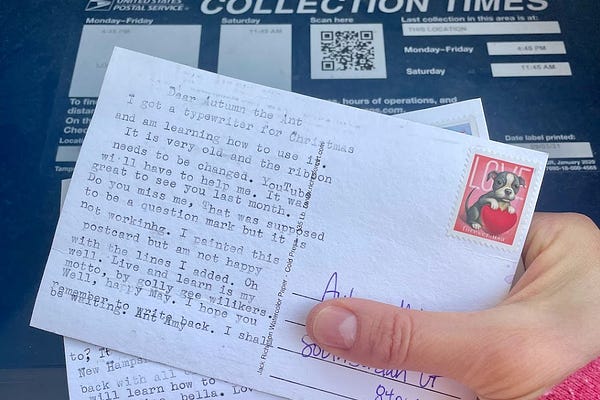 UNITED STATES
POSTAL SERVICE
COLLECTION TIMES
Monday–Friday
4:45 PM
Saturday
11:45 AM
Scan here
Last collection in this area is at:
THIS LOCATION
Monday–Friday
4:45 PM
Saturday
11:45 AM
hours of operations, and
Date label printed:
Dear Autumn the Ant
I got a typewriter for Christmas
and am learning how to use it.
It is very old and the ribbon
needs to be changed. YouTube
will have to help me. It was
great to see you last month.
Do you miss me, That was supposed
to be a question mark but it
not workinhg. I painted this
postcard but am not happy
with the lines I added. Oh
well. Live and learn is my
motto, by golly gee wilikers.
Well, harry May. I hope you
remember to Write back. I shall
be waiting. Ant Amy
Jack Richeson Watercolor Paper - Cold Press
LOVE
forever/usa
to? It
New Hamps
back with all
will learn how to
bella. Lov